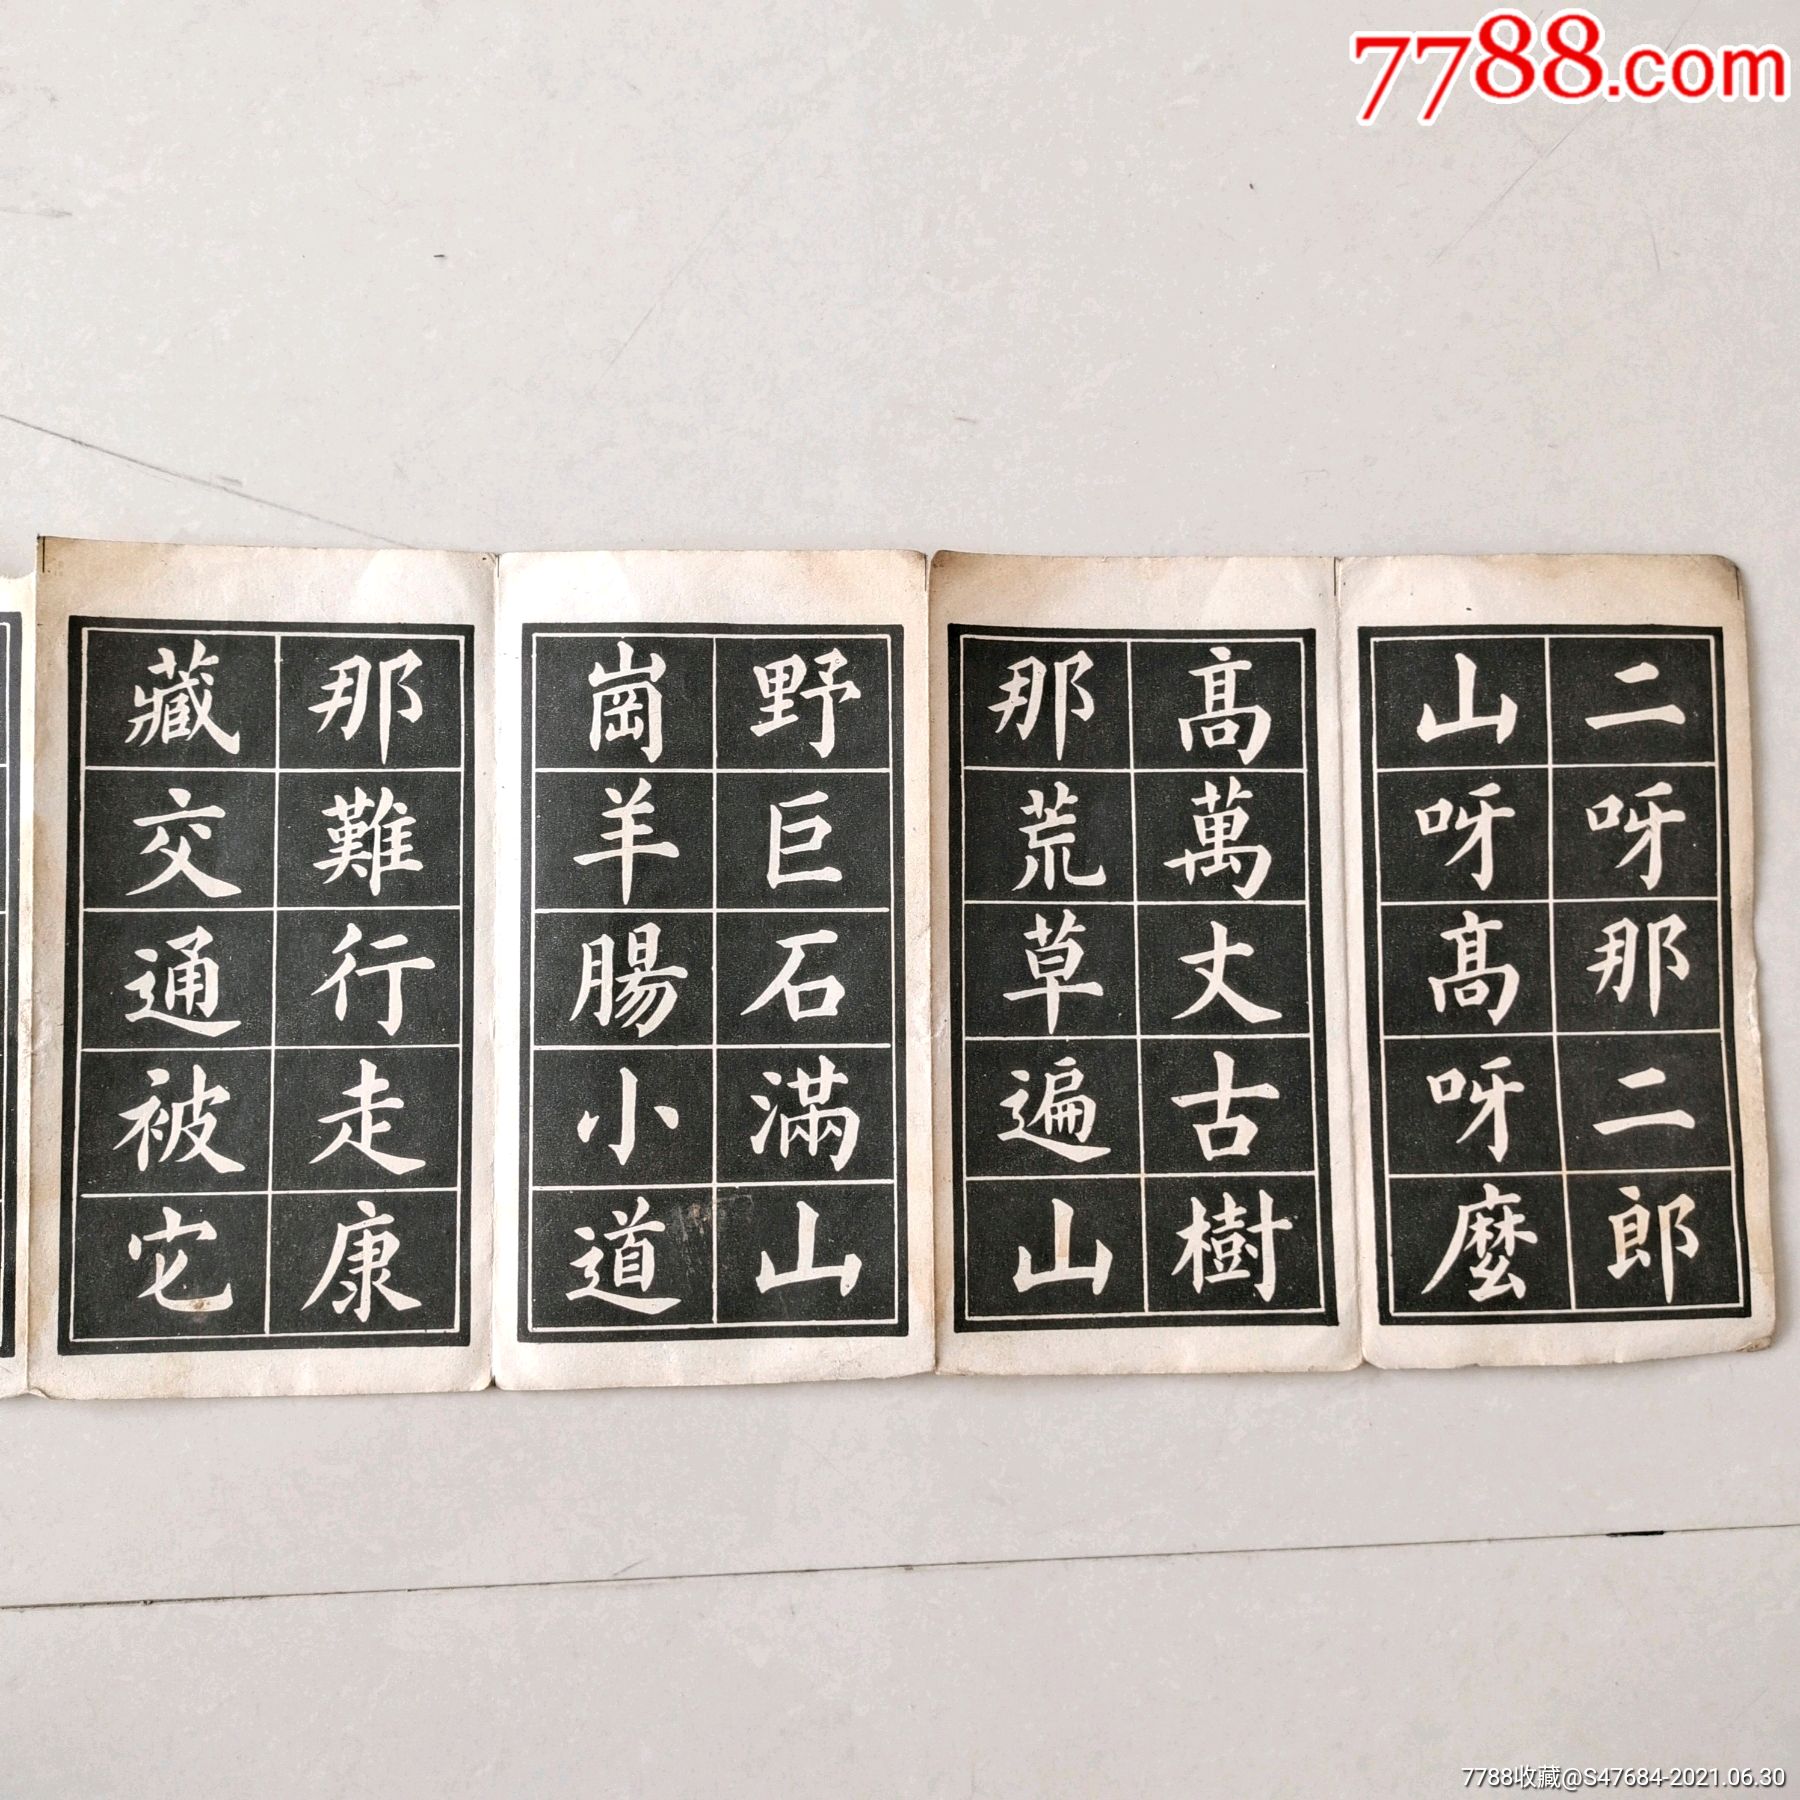 7788.com
二呀那二郎
山呀高呀麼
高萬丈古樹
那荒草遍山
野巨石滿山
崗羊腸小道
那難行走康
藏交通被它
7788收藏@S47684-2021.06.30